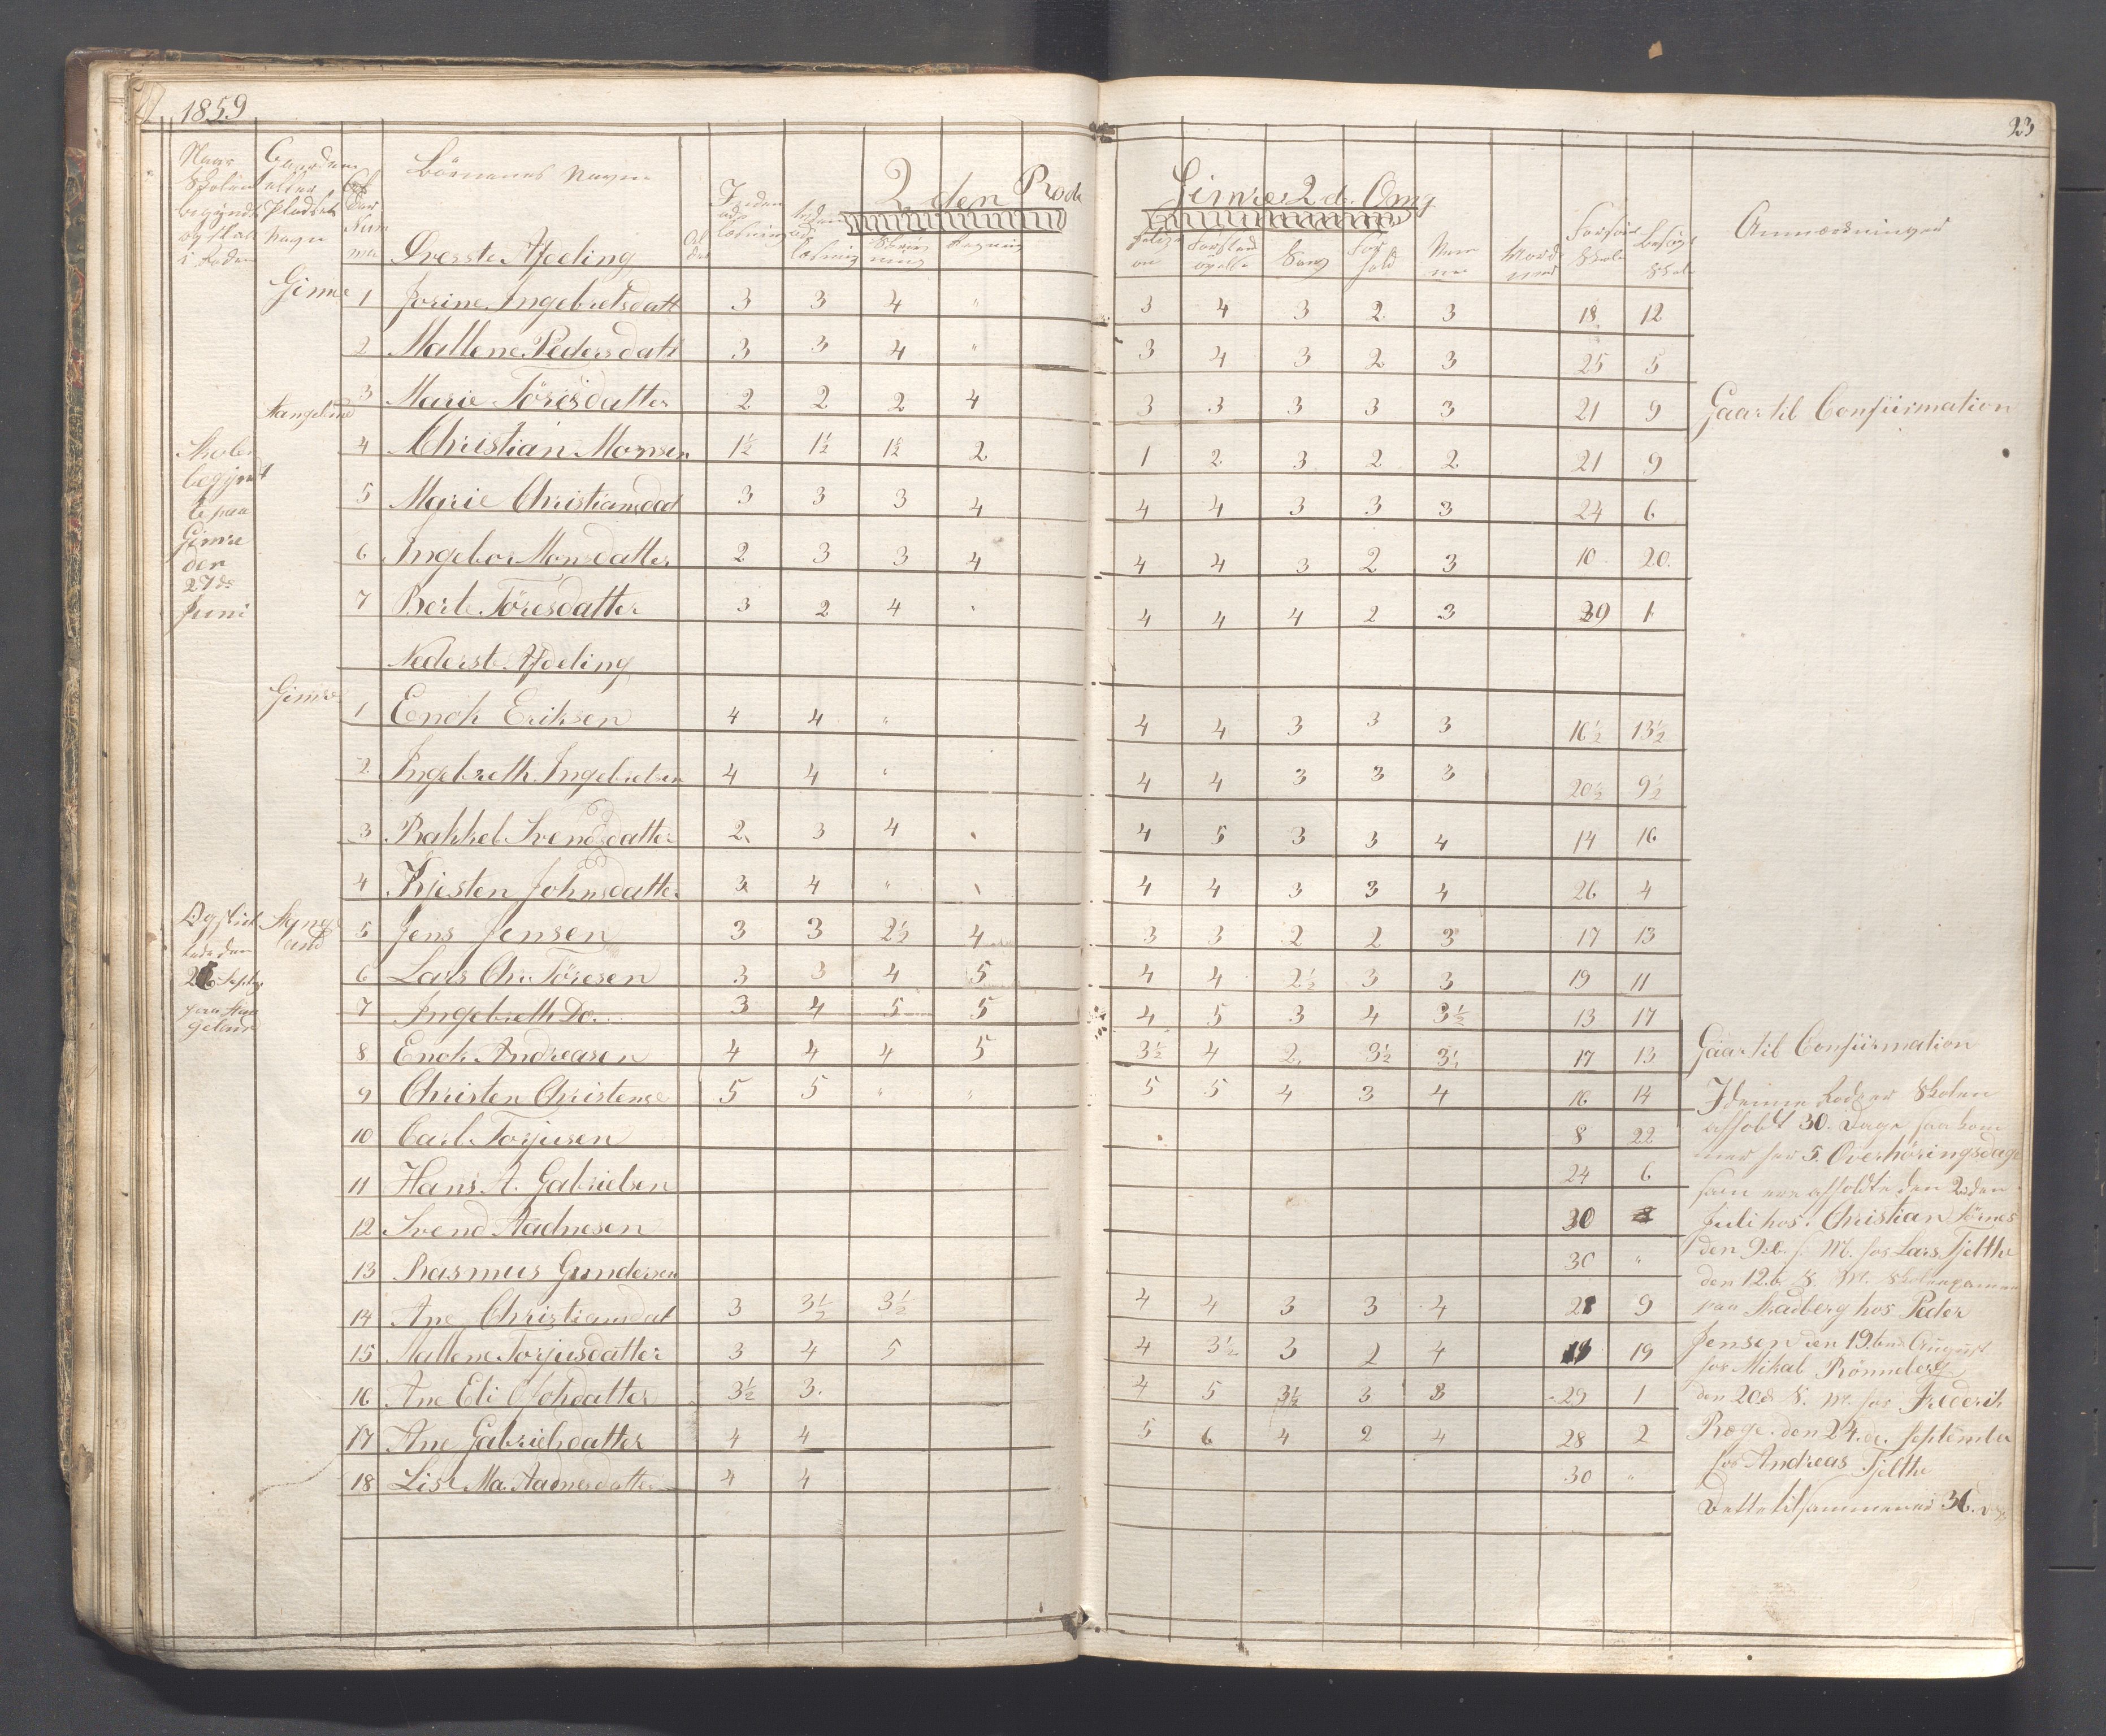 1859
23
2den Rode
Gimre 2d. Omg
Naar Skolen begyndt og skal i Roden
Gaardens eller Pladsets Navn
Børnenes Navne
Anmærkninger
Øverste Afdeling
Gimre 1 Jorine Ingebretsdatt 3 3 4 " 3 4 3 2 3 18 12
2 Mallene Pedersdatt 3 3 4 " 3 4 3 2 3 25 5
3 Marie Törisdatter 2 2 2 4 3 3 3 3 3 21 9 Gaar til Confiirmation
Stangeland
4 Christian Monsen 1½ 1½ 1½ 2 1 2 3 2 2 21 9
Skolen begynt
5 Marie Christiansdat 3 3 3 4 4 4 3 3 3 24 6
te paa
Gimre
6 Ingebor Monsdatter 2 3 3 4 4 4 3 2 3 10 20
den
27de
7 Berte Töresdatter 3 2 4 4 4 4 2 3 29 1
Juni
Nederste Afdeling
Gimre
1 Enok Eriksen 4 4 " 4 4 3 3 3 16½ 13½
2 Ingebreth Ingebretsen 4 4 " 4 4 3 3 3 20½ 9½
3 Rakkel Svendsdatter 2 3 4 4 5 3 3 4 14 16
4 Kjesten Johnsdatter 3 4 " 4 4 3 3 4 26 4
5 Jens Jensen 3 3 2½ 4 3 3 2 2 3 17 13
6 Lars Chr. Töresen 3 3 4 5 4 4 2½ 3 3 19 11
26 Septbr
paa Stan
geland
7 Ingebreth Do. 3 4 5 5 4 5 3 4 3½ 13 17
8 Enok Andreasen 4 4 4 5 3½ 4 2 3½ 3½ 17 13 Gaar til Confiirmation
9 Christen Christense 5 5 " " 5 5 4 3 4 16 14
10 Carl Torjusen 8 22
11 Hans A. Gabrielsen 24 6
12 Svend Aadnesen 30
13 Rasmus Gundersen 30 "
14 Ane Christiansdat 3 3½ 3½ 4 4 3 3 4 21 9
15 Mallene Torjusdatter 3 4 5 4 3½ 3 2 4 19
16 Ane Eli 3½ 3. 4 5 3½ 3 3 29 1
17 Ane Gabrielsdatter 4 4 5 6 4 2 4 28 2
18 Lise Ma. Aadnesdatter 4 4 30 "
I denne Rode er Skolen
afholdt 30. Dage saa kom
mer her 5. Overhöringsdage
som ere afholdte den 2den
Juli hos. Christian Törnes
den 9.b. s. M. hos Lars Tjelthe
den 12.b. s. M.
paa Stadberg hos Peder
Jensen den 19.b August
hos Mikal Rönneberg
den 20.d s. M. hos Frederik
Roge. den 24.de. September
hos Andreas Tjelthe
Dette tilsammener 36.